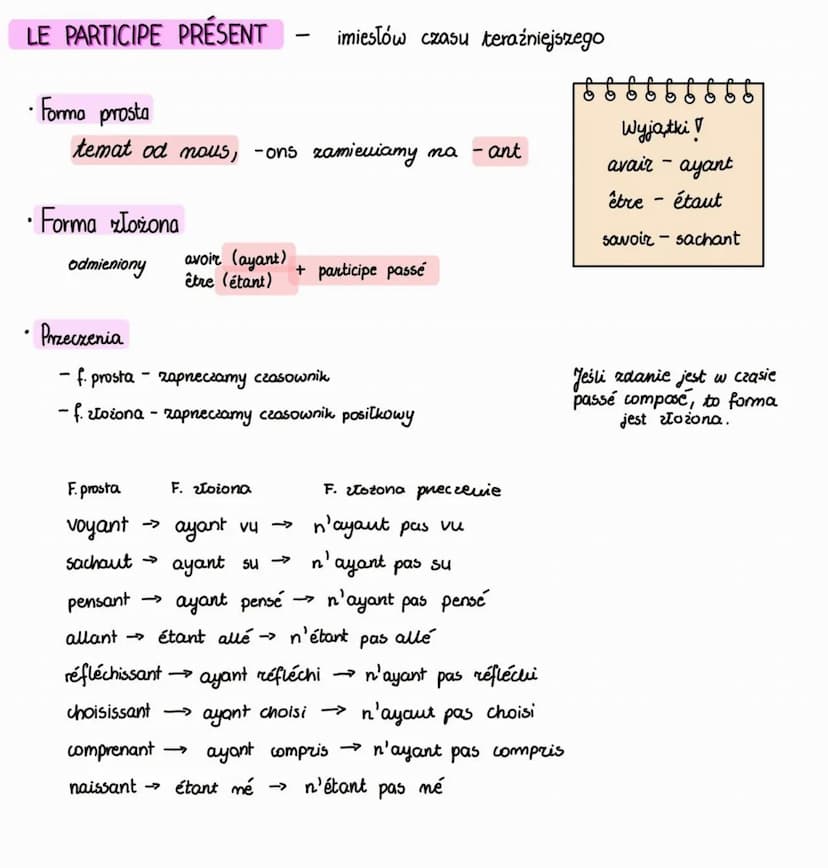 LE PARTICIPE PRÉSENT – imiesłów czasu teraźniejszego
· Forma prosta
temat od nous, -ons zamieniamy na -ant
Wyjątki!
avoir - ayant
être - étant
savoir - sachant
· Forma złożona
odmieniony avoir (ayant) + participe passé
être (étant)
· Przeczenia
- f. prosta - zaprzeczamy czasownik
- f. złożona - zaprzeczamy czasownik posiłkowy
Jeśli zdanie jest w czasie
passé composé, to forma
jest złożona.
F. prosta F. złożona F. złożona przeczenie
voyant → ayant vu → n'ayant pas vu
sachant → ayant su → n'ayant pas su
pensant → ayant pensé → n'ayant pas pensé
allant → étant allé → n'étant pas allé
réfléchissant → ayant réfléchi → n'ayant pas réfléchi
choisissant → ayant choisi → n'ayant pas choisi
comprenant → ayant compris → n'ayant pas compris
naissant → étant né → n'étant pas né